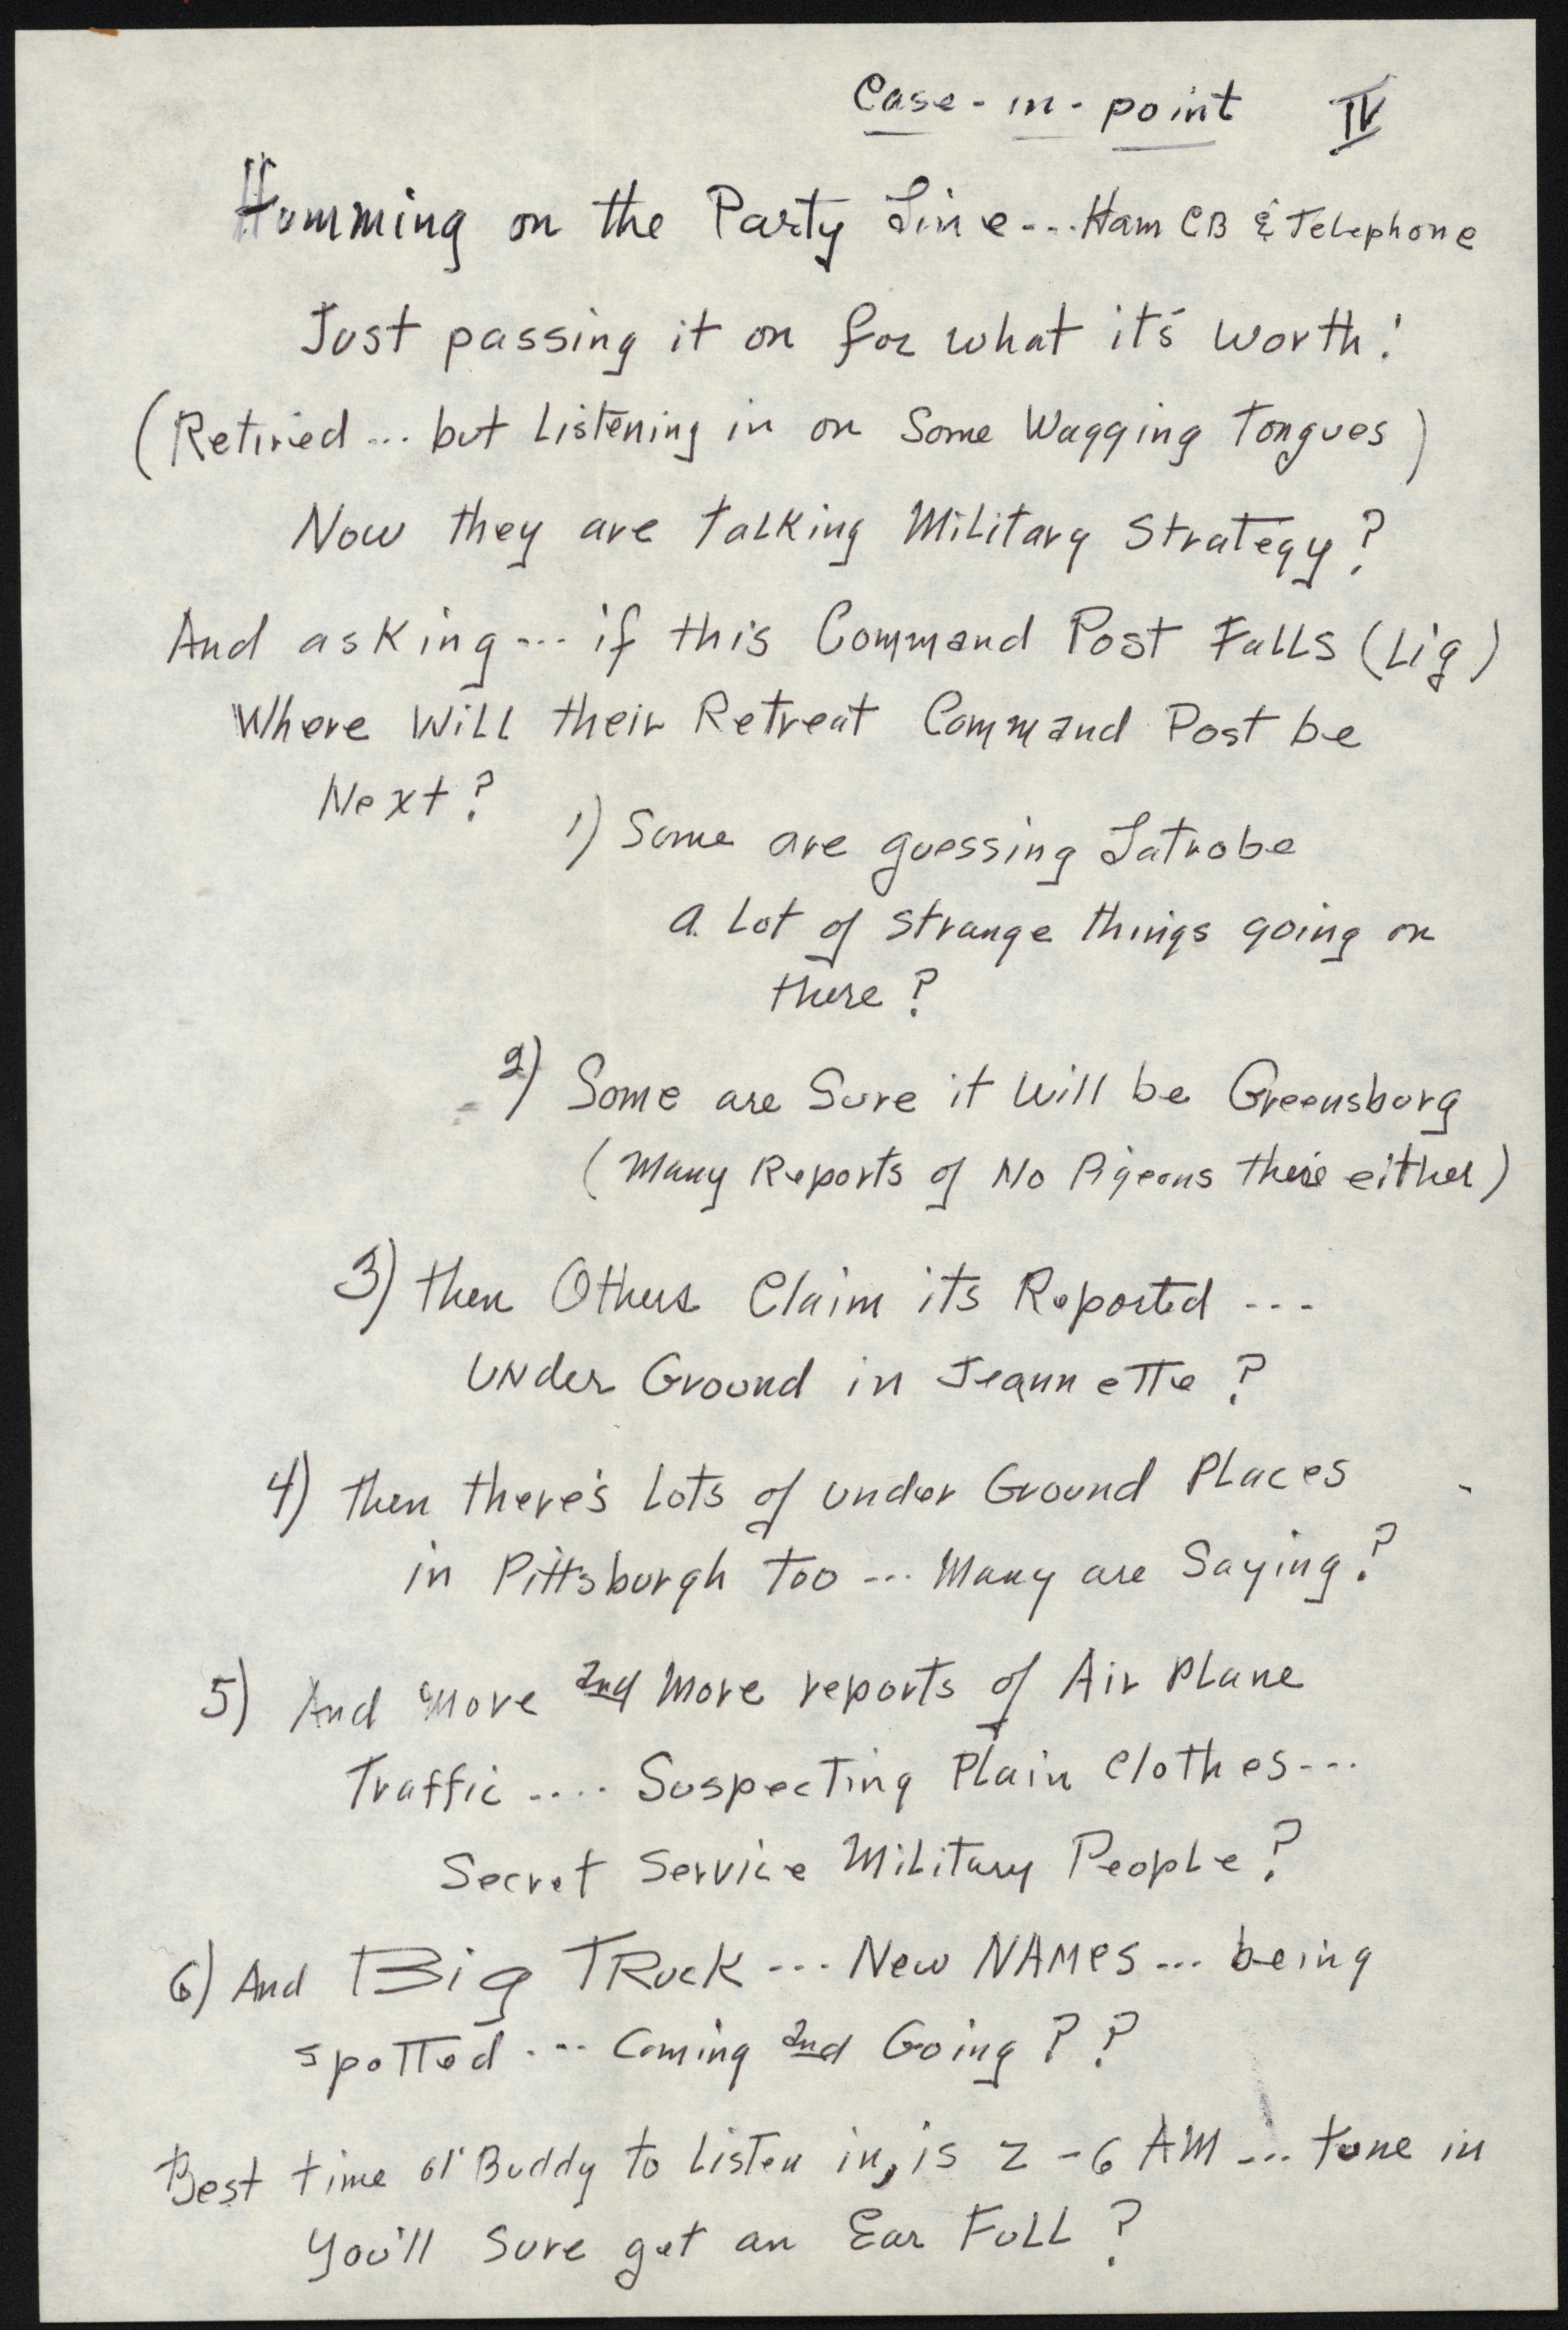 Case-in-point IV
Humming on the Party Line... Ham CB & Telephone
Just passing it on for what it's worth!
(Retired... but Listening in on Some Wagging Tongues)
Now they are talking Military Strategy?
And asking... if this Command Post Falls (Lig)
Where Will their Retreat Command Post be
Next?
1) Some are guessing Latrobe
a Lot of strange things going on
there?
2) Some are Sure it Will be Greensburg
(Many Reports of No Pigeons there either)
3) then Others Claim its Reported ...
UNder Ground in Jeannette?
4) then there's Lots of under Ground Places
in Pittsburgh too... Many are Saying?
5) And More and More reports of Air Plane
Traffic.... Suspecting Plain Clothes...
Secret Service Military People?
6) And Big TRuck ... New NAMes... being
spotted.... Coming and Going??
Best time ol' Buddy to Listen in, is 2-6 AM... tune in
You'll Sure get an Ear Full?